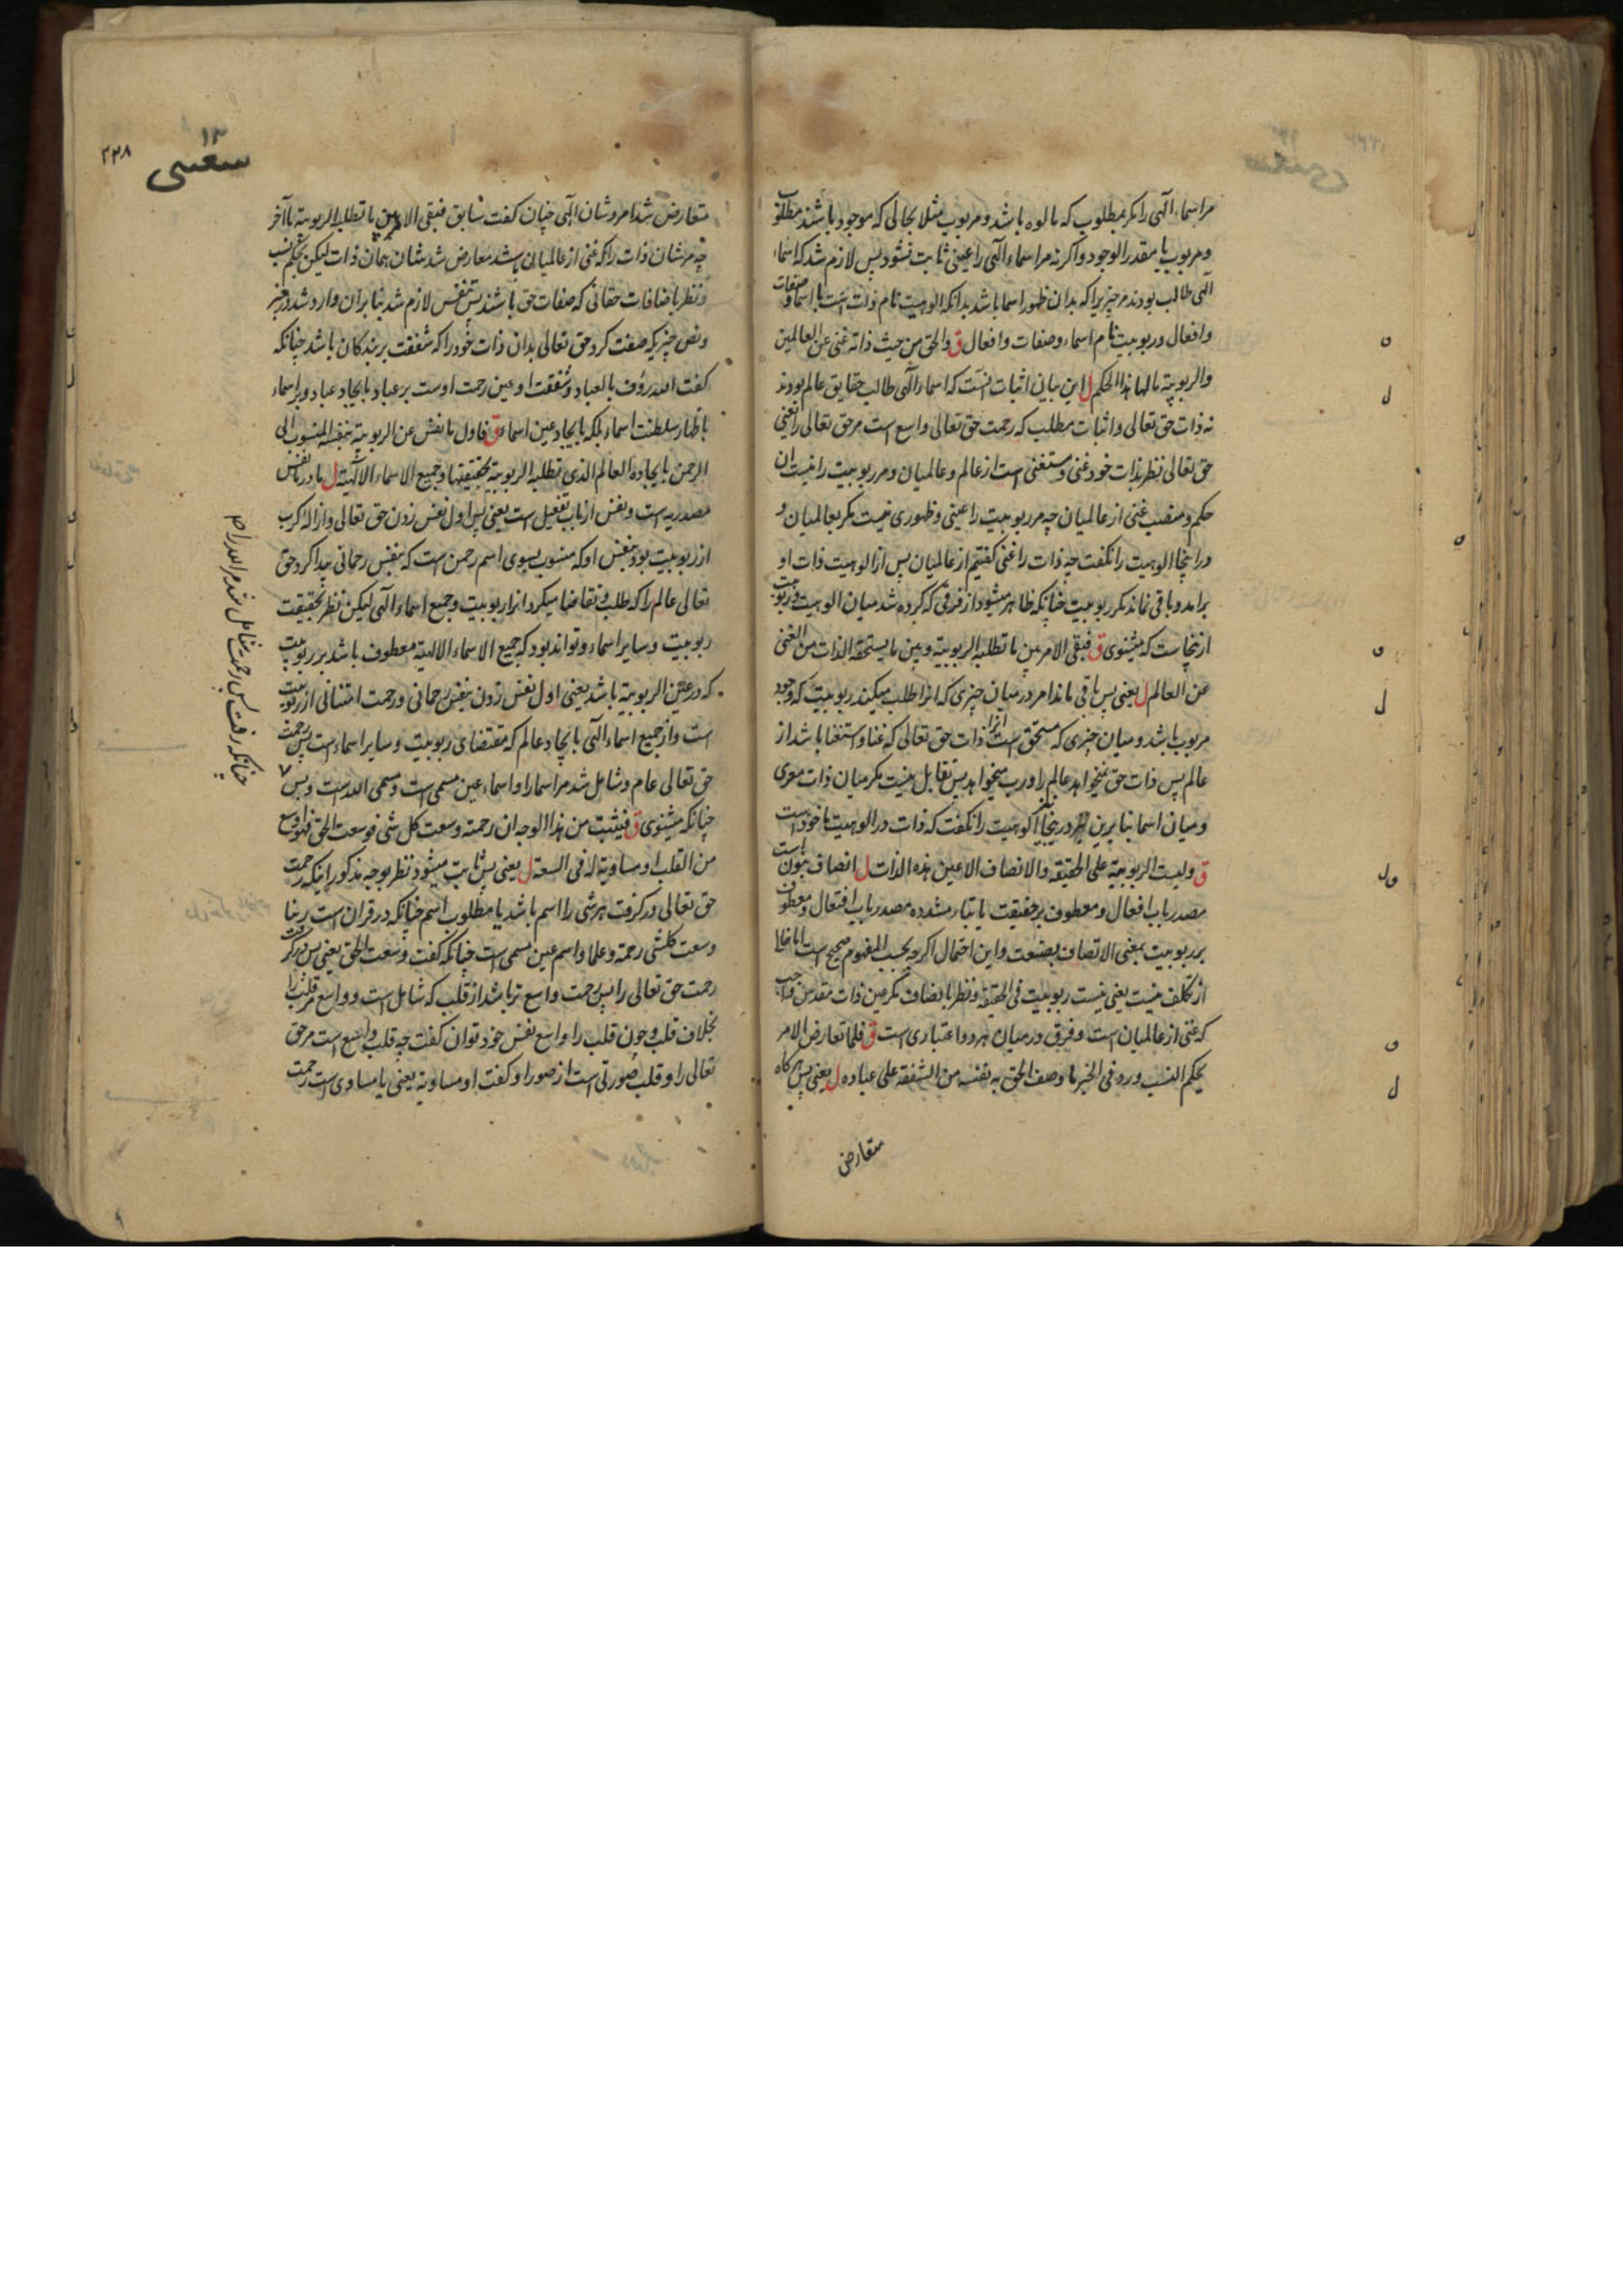 مر اسماء الٓهی را مکر بمطلوب که مالوه باشد و مربوب مثلا بحالی که موجود باشند مطلق
و مربوب یا مقدر الوجود و اکر نه مر اسماء الٓهی را عینی ثابت نشود پس لازم شد که اسماء
الٓهی طالب بودند مر چیزیرا که بدان ظهور اسما باشد بدانکه الوهیت نام ذات است با اسما و صفات
و افعال و ربوبیت نام اسماء و صفات و افعال ق والحق من حیث ذاته غنی عن العالمین
والربوبیة مالها هذا الحکم ل این بیان اثبات انست که اسماء الٓهی طالب حقایق عالم بودند
نه ذات حق تعالی و اثبات مطلب که رحمت حق تعالی واسع است مر حق تعالی را یعنی
حق تعالی بنظر بذات خود غنی و مستغنی است از عالم و عالمیان و مر ربوبیت را نیست ان
حکم و منصب غنی از عالمیان چه مر ربوبیت را عینی و ظهوری نیست مکر بعالمیان و
در اینجا الوهیت را نکفت چه ذات را غنی کفتیم از عالمیان پس از الوهیت ذات او
برامد و باقی نماند مکر ربوبیت چنانکه ظاهر میشود از فرقی که کرده شد میان الوهیت و ربوبیت
ازینجاست که میشنوی ق فبقی الامر بین ما تطلبه الربوبیة و بین ما یستحقه الذات من الغنی
عن العالم ل یعنی پس باقی ماند امر در میان چیزی که انرا طلب میکند ربوبیت که وجود
مربوب باشد و میان چیزی که مستحق است انرا ذات حق تعالی که غنا و استغنا باشد از
عالم پس ذات حق نمیخواهد عالم را و رب میخواهد پس تقابل نیست مکر میان ذات معری
و میان اسما بنابرین در ینجا الوهیت را نکفت که ذات در الوهیت ماخوذ است
ق ولیست الربوبیة علی الحقیقة والاتصاف الا عین هذه الذات ل انصاف بنون است
مصدر باب افعال و معطوف بر حقیقت یا بتاء مشدده مصدر باب افتعال و معطوف
بر ربوبیت بمعنی الاتصاف بصنعت و این احتمال اکرچه بحسب المفهوم صحیح است اما خالی
از تکلف نیست یعنی نیست ربوبیت فی الحقیقه و نظر بانصاف مکر عین ذات مقدس واجب
که غنی از عالمیان است و فرق در میان هر دو اعتباری است ق فلما تعارض الامر
بحکم النسب ورد فی الخبر ما وصف الحق به نفسه من الشفقة علی عباده ل یعنی پس هرکاه
متعارض
١٣
شعیبی
٢٣٨
متعارض شد امر و شان الٓهی چنان کفت سابق فبقی الامر بین ما تطلبه الربوبیة تا آخر
چه مر شان ذات را که غنی از عالمیان باشد معارض شد شان همان ذات لیکن بحکم نسب
و نظر باضافات حقانی که صفات حق باشند پس تنفس لازم شد بنابران وارد شد در خبر
و نص چیزیکه صفت کرد حق تعالی بدان ذات خود را که شفقت بر بندکان باشد چنانکه
کفت الله رؤف بالعباد و شفقت او عین رحمت اوست بر عباد بایجاد عباد و بر اسماء
باظهار سلطنت اسماء بلکه بایجاد عین اسماء ق فاول ما نفس عن الربوبیة بنفسه المنسوب الی
الرحمن بایجاده العالم الذی تطلبه الربوبیة بحقیقتها و جمیع الاسماء الالٓهیة ل ما در ما نفس
مصدریه است و نفس از باب تفعیل است یعنی پس اول نفس زدن حق تعالی و ازاله کرب
از ربوبیت بود بنفس او که منسوب بسوی اسم رحمن است که بنفس رحمانی پیدا کرد حق
تعالی عالم را که طلب و تقاضا میکرد انرا ربوبیت و جمیع اسماء الٓهی لیکن نظر بحقیقت
ربوبیت و سایر اسماء و تواند بود که جمیع الاسماء الالهیة معطوف باشد بر ربوبیت
که در عن الربوبیة باشد یعنی اول نفس زدن بنفس رحمانی و رحمت امتنانی از ربوبیت
است و از جمیع اسماء الٓهی بایجاد عالم که مقتضای ربوبیت و سایر اسماء است پس رحمت
حق تعالی عام و شامل شد مر اسما را و اسماء عین مسمی است و مسمی الله است و بس ٧
چنانکه میشنوی ق فیثبت من هذا الوجه ان رحمته وسعت کل شی فوسعت الحق فهی اوسع
من القلب او مساویة له فی السعة ل یعنی پس ثابت میشود نظر بوجه مذکور اینکه رحمت
حق تعالی در کرفت هر شی را اسم باشد یا مطلوب اسم چنانکه در قران است ربنا
وسعت کلشی رحمة و علما و اسم عین مسمی است چنانکه کفت وسعت الحق یعنی پس در کرفت
رحمت حق تعالی را پس رحمت واسع تر باشد از قلب که شامل است و واسع مر قلب را
بخلاف قلب و چون قلب را واسع نفس خود توان کفت چه قلب واسع است مر حق
تعالی را و قلب صورتی است از صور او کفت او مساویة یعنی یا مساوی است رحمت
چنانکه رفت پس رحمت شامل شد مر الله را